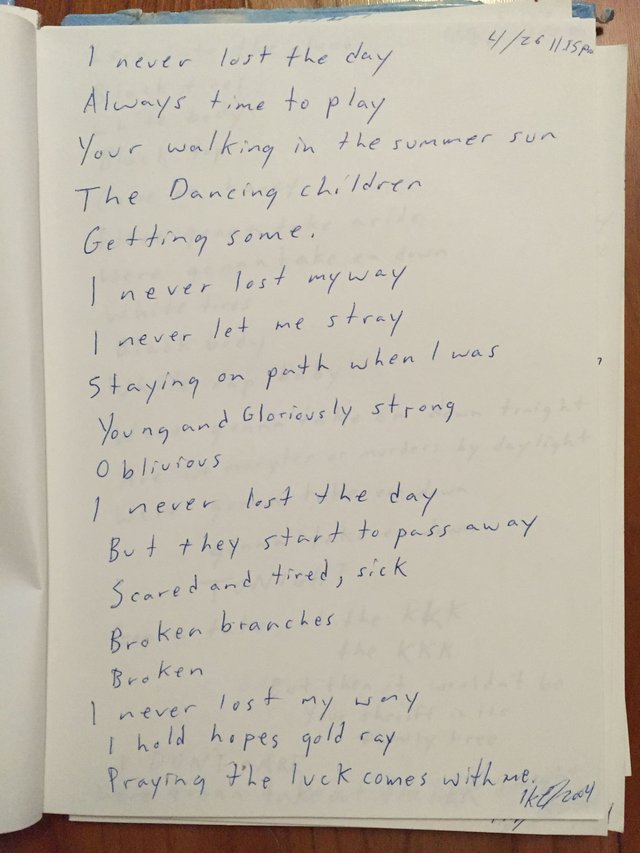 4/26 11:35pm
I never lost the day
Always time to play
Your walking in the summer sun
The Dancing children
Getting some.
I never lost my way
I never let me stray
Staying on path when I was
Young and Gloriously strong
Oblivious
I never lost the day
But they start to pass away
Scared and tired, sick
Broken branches
Broken
I never lost my way
I hold hopes gold ray
Praying the luck comes with me.
2004